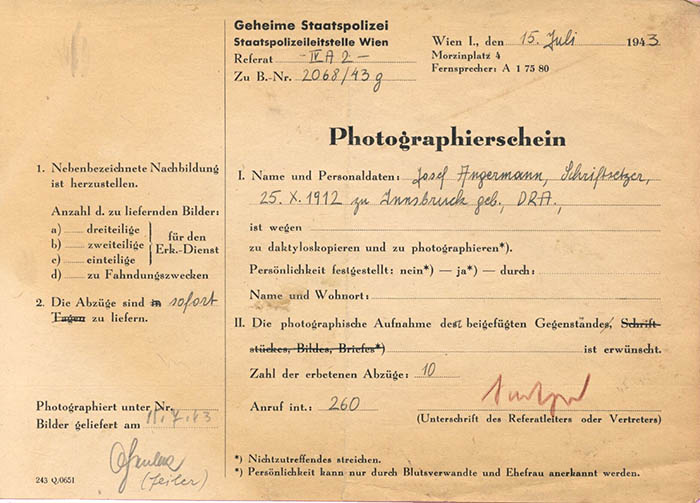 Geheime Staatspolizei
Staatspolizeileitstelle Wien
Referat -IV A 2-
Zu B.-Nr. 2068/43 g
Wien I., den 15. Juli 1943
Morzinplatz 4
Fernsprecher: A 1 75 80
Photographierschein
1. Nebenbezeichnete Nachbildung
ist herzustellen.
Anzahl d. zu liefernden Bilder:
a) dreiteilige
b) zweiteilige
c) einteilige
für den
Erk.-Dienst
d) zu Fahndungszwecken
2. Die Abzüge sind in sofort
Tagen zu liefern.
Photographiert unter Nr.
Bilder geliefert am .7.43
(Zeiler)
243 Q/0651
I. Name und Personaldaten: Josef Angermann, Schriftsetzer,
25. X. 1912 zu Innsbruck geb., DRA.,
ist wegen
zu daktyloskopieren und zu photographieren*).
Persönlichkeit festgestellt: nein*) — ja*) — durch:
Name und Wohnort:
II. Die photographische Aufnahme des beigefügten Gegenstandes, Schrift-
stückes, Bildes, Briefes*) ist erwünscht.
Zahl der erbetenen Abzüge: 10
Anruf int.: 260
(Unterschrift des Referatleiters oder Vertreters)
*) Nichtzutreffendes streichen.
*) Persönlichkeit kann nur durch Blutsverwandte und Ehefrau anerkannt werden.